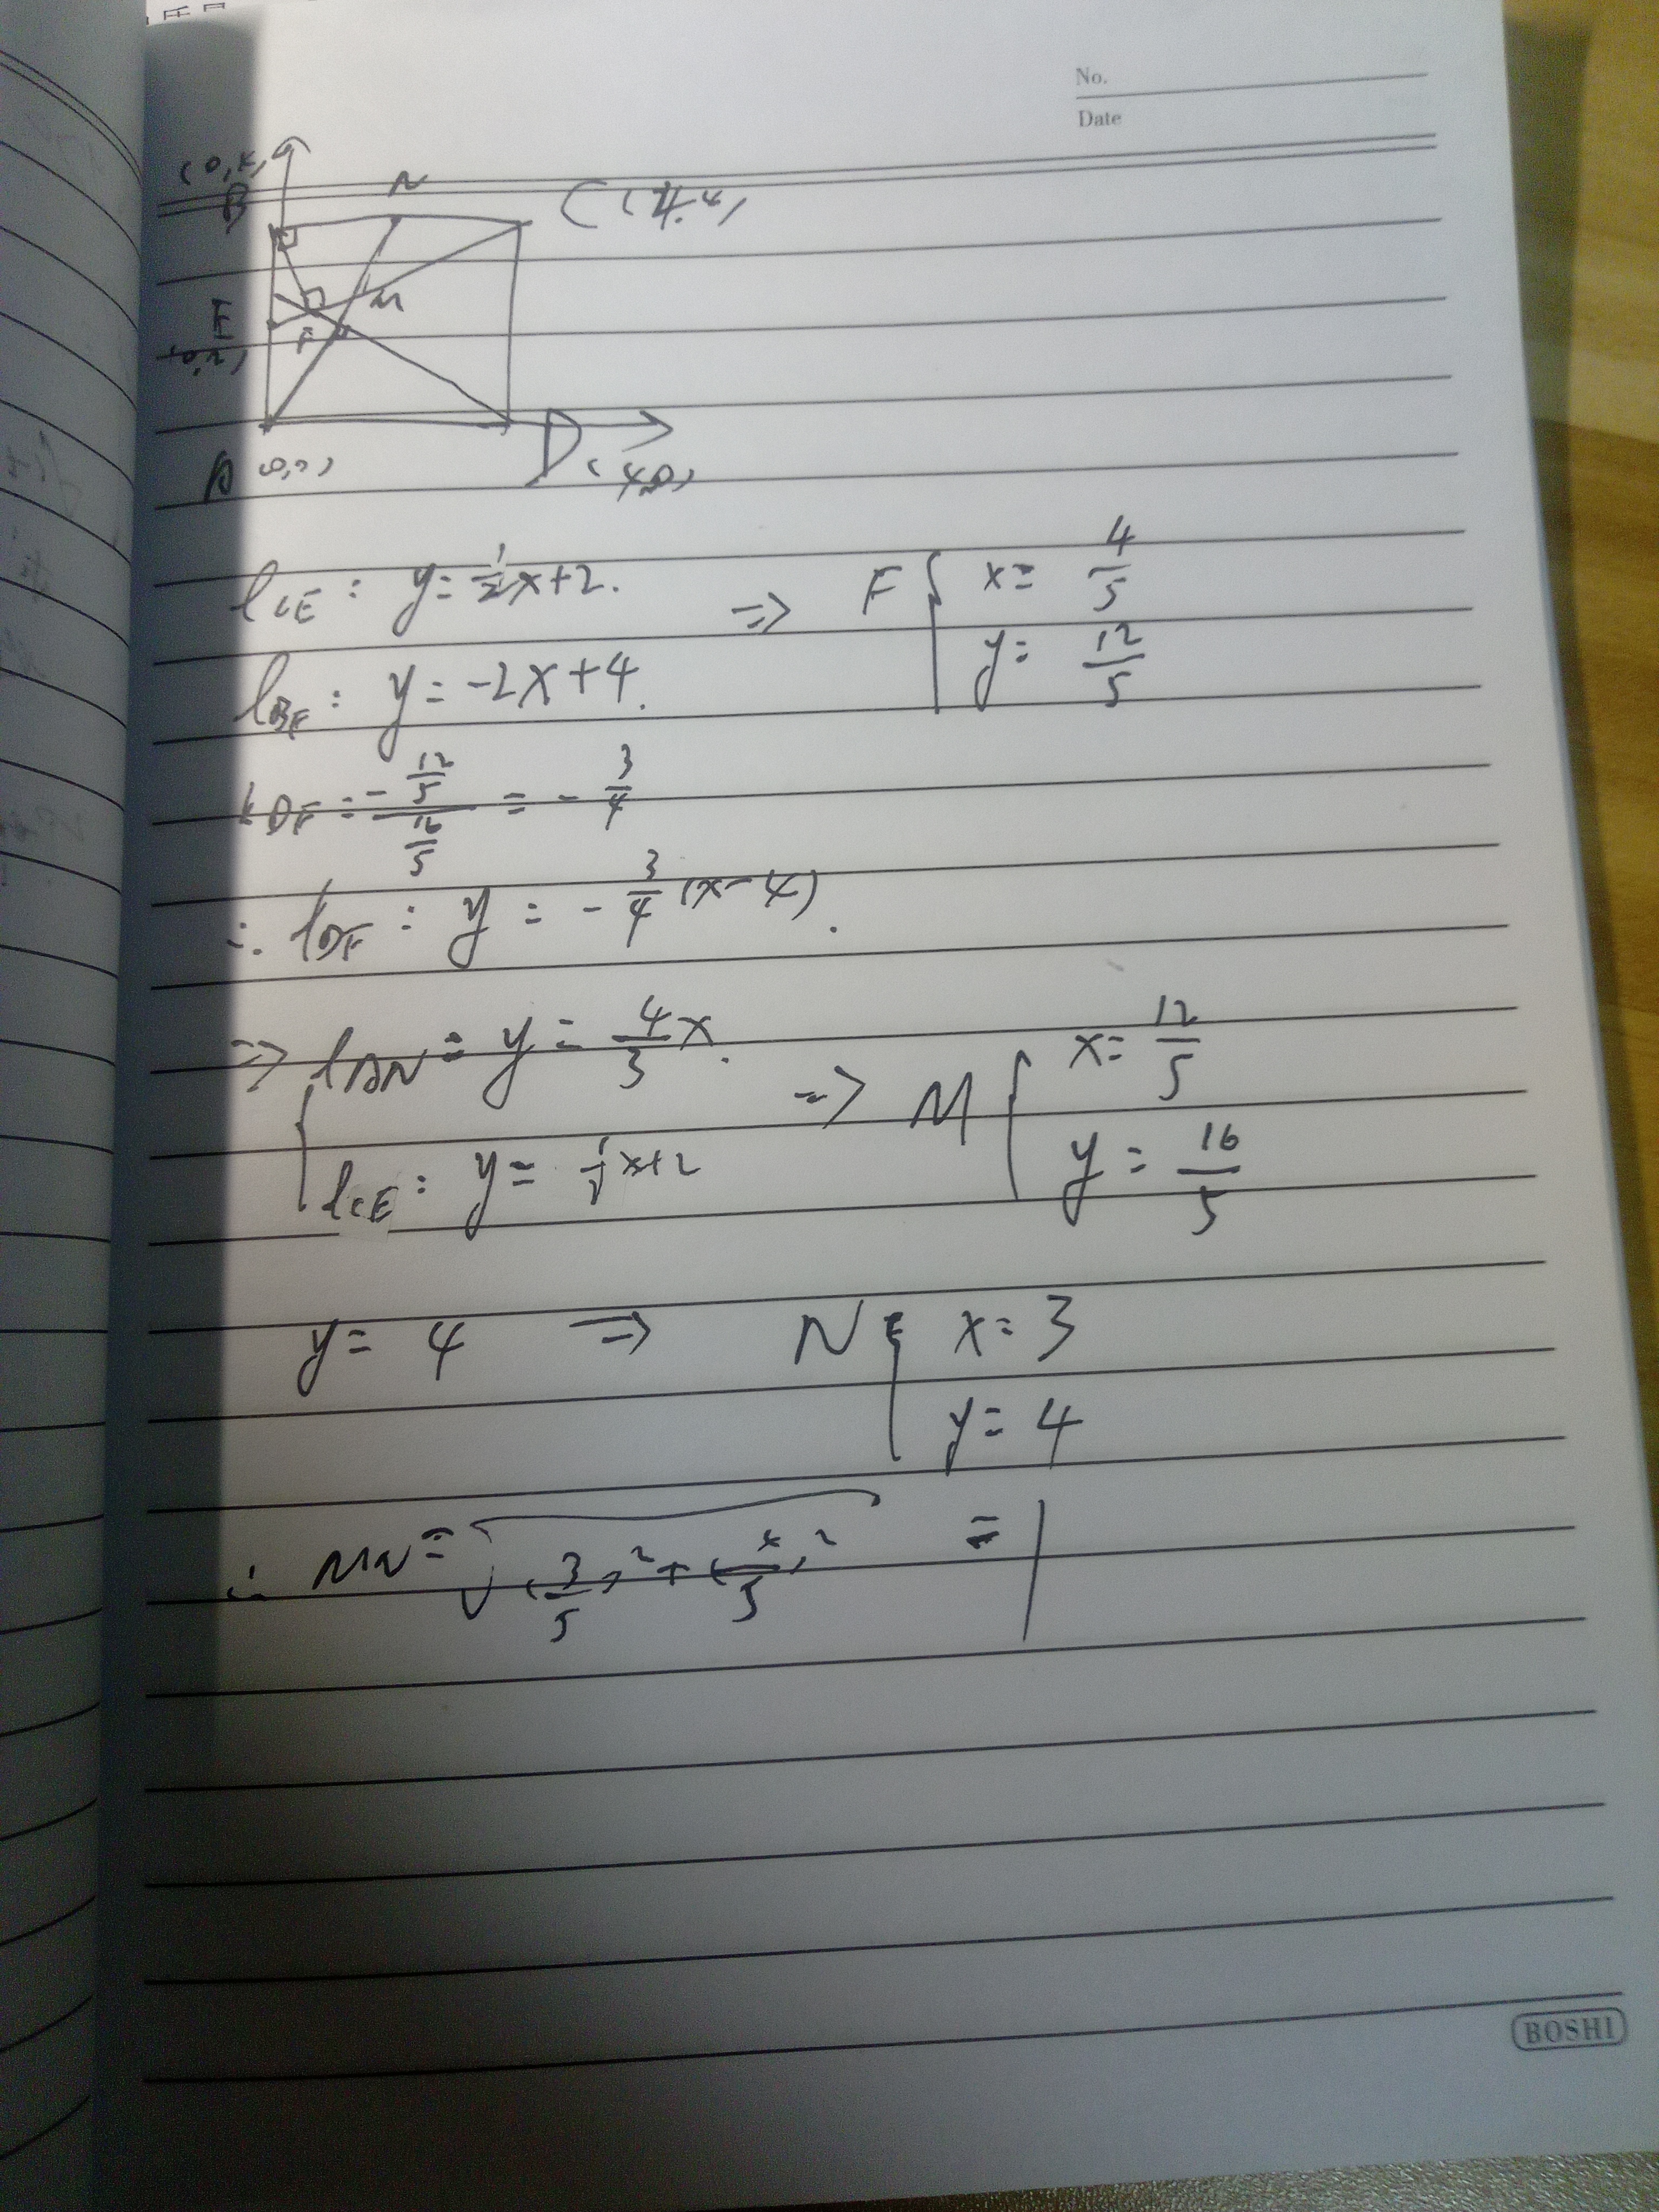 No.
Date
(0,4)
B
N
C (4,4)
E
(0,2)
F
M
A (0,0)
D (4,0)
l_CE: y=1/2x+2. => F { x= 4/5
l_BF: y=-2x+4. y= 12/5
k_DF = -12/5 / 16/5 = -3/4
∴ l_DF: y = -3/4(x-4).
=> { l_AN = y = 4/3x. => M { x= 12/5
l_CE: y= 1/2x+2 y= 16/5
y= 4 => N { x=3
y=4
∴ MN= √(3/5)²+(4/5)² = 1
BOSHI